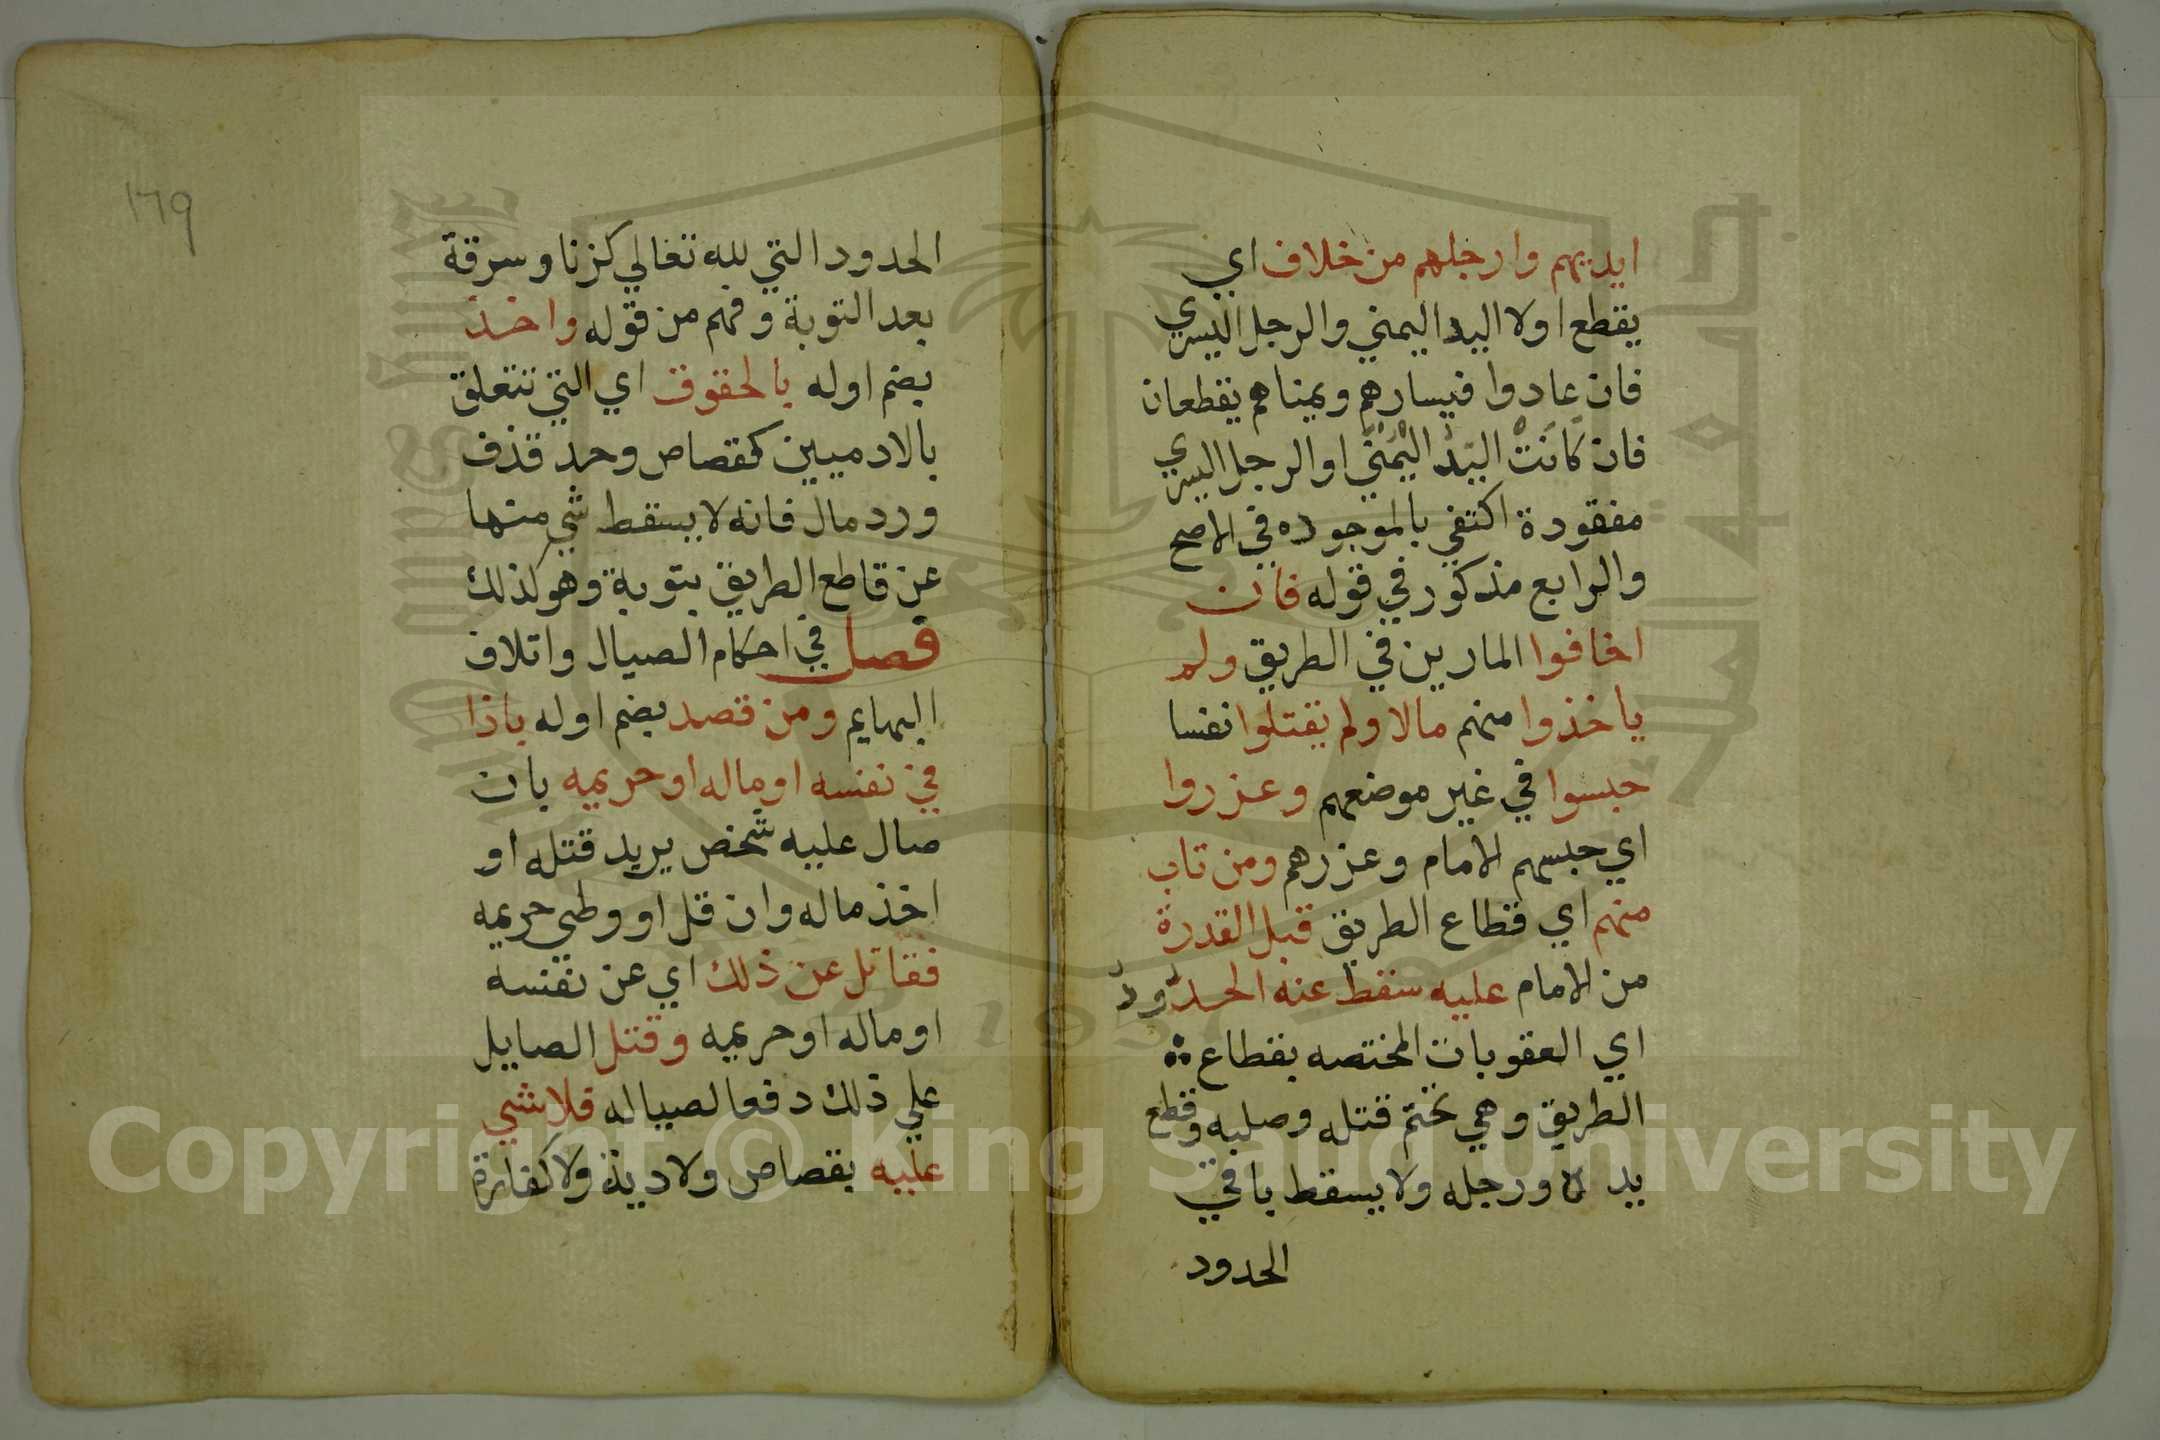 ايديهم وارجلهم من خلاف اي
يقطع اولا اليد اليمني والرجل اليسري
فان عادوا فيسارهم ويمناهم يقطعان
فان كَانَتْ اليَدُ اليُمْنَي او الرجل اليسري
مفقودة اكتفي بالموجوده في الاصح
والرابع مذكور في قوله فان
اخافوا المارين في الطريق ولم
ياخذوا منهم مالا ولم يقتلوا نفسا
حبسوا في غير موضعهم وعزروا
اي حبسهم الامام وعزرهم ومن تاب
منهم اي قطاع الطريق قبل القدرة
من الامام عليه سقط عنه الحدُود
اي العقوبات المختصه بقطاع
الطريق وهي تحتم قتله وصلبه وقطع
يده ورجله ولا يسقط باقي
الحدود
١٦٩
الحدود التي لله تعالي كزنا وسرقة
بعد التوبة وفهم من قوله واخذ
بضم اوله بالحقوق اي التي تتعلق
بالادميين كقصاص وحد قذف
ورد مال فانه لا يسقط شي منها
عن قاطع الطريق بتوبة وهو كذلك
فصل في احكام الصيال واتلاف
البهايم ومن قصد بضم اوله باذا
في نفسه او ماله او حريمه بان
صال عليه شخص يريد قتله او
اخذ ماله وان قل او وطي حريمه
فقاتل عن ذلك اي عن نفسه
او ماله او حريمه وقتل الصايل
علي ذلك دفعا لصياله فلا شي
عليه بقصاص ولا دية ولا كفارة
Copyright © King Saud University
1957